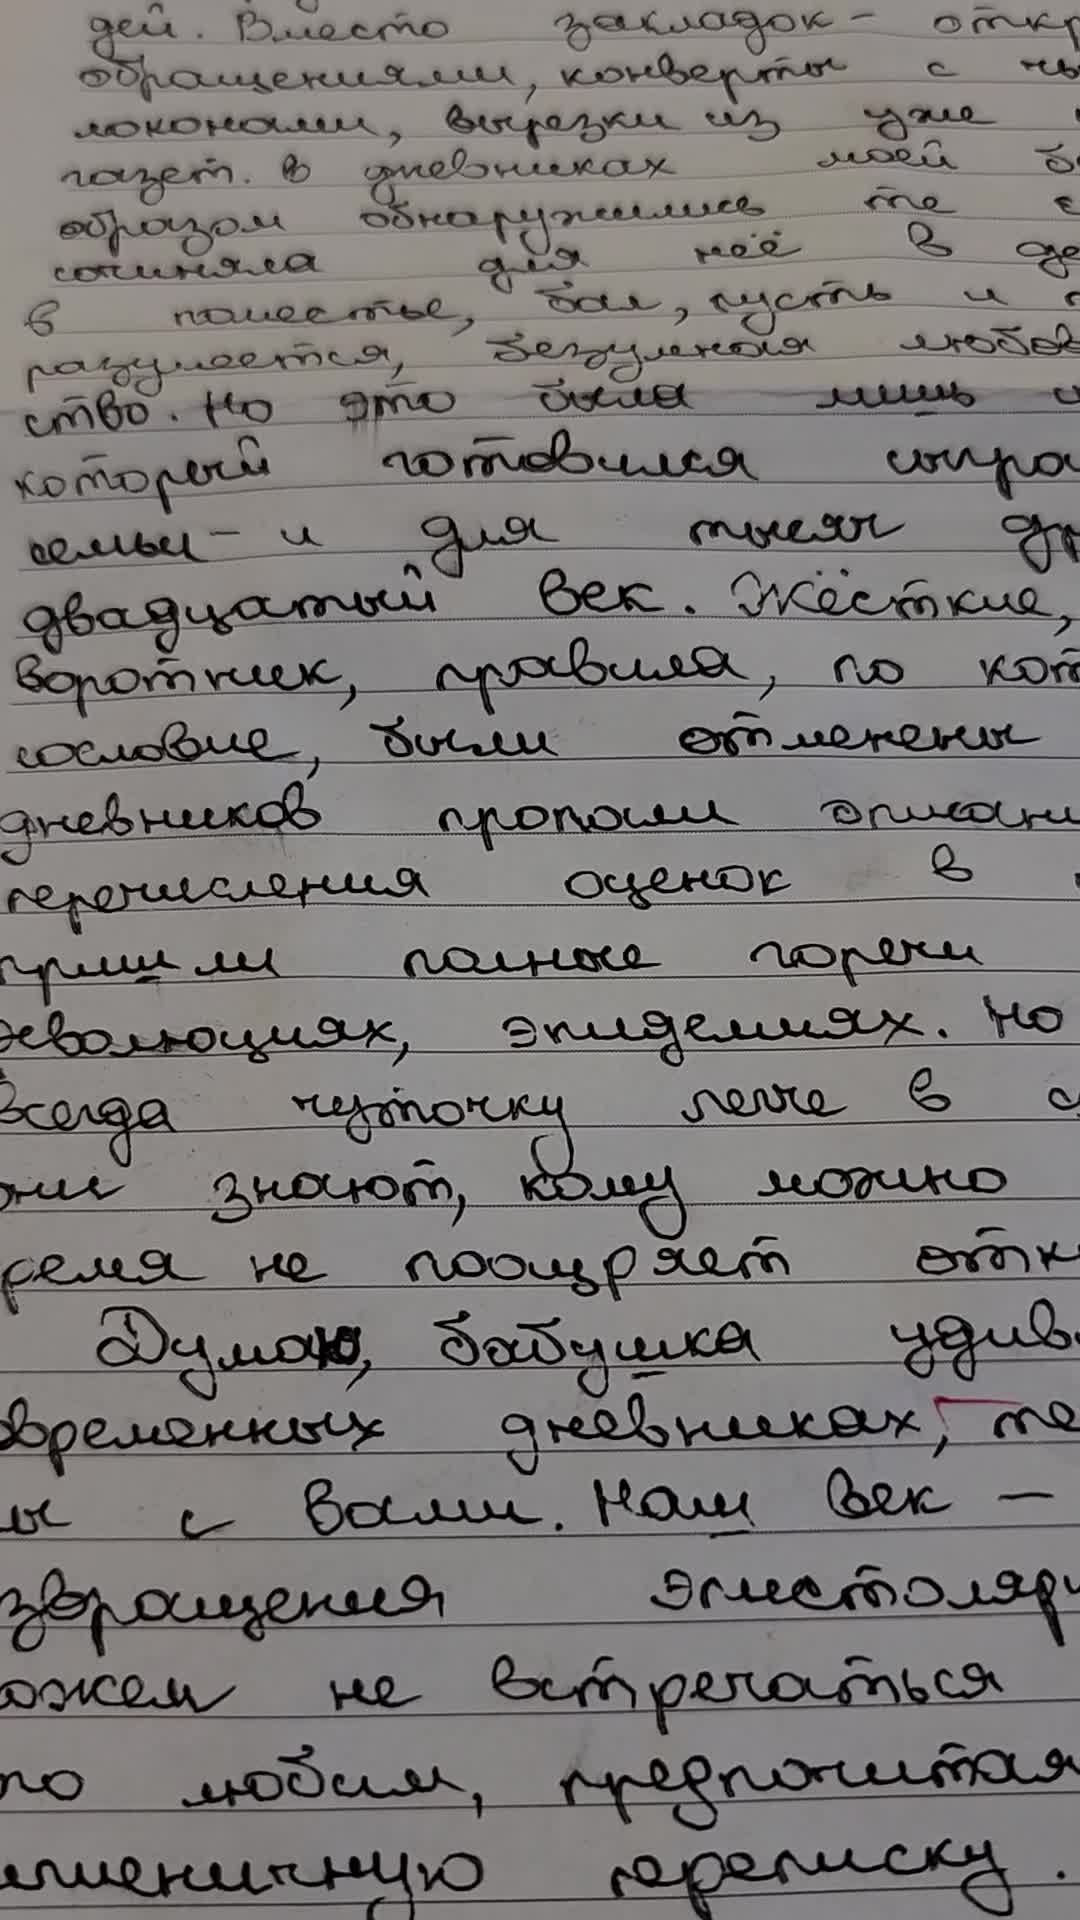 дей. Вместо закладок - откр
обращениями, конверты с чь
локонами, вырезки из уже
газет. В дневниках моей б
образом обнаружились те с
сочиняла для неё в де
в поместье, бал, пусть и
разумеется, безумная любов
ство. Но это была лишь
который готовился сыгра
семьи - и для тысяч др
двадцатый век. Жёсткие,
воротник, правила, по кот
сословие, были отменены
дневников пропали описани
перечисления оценок в
пришли полные горечи
еволюциях, эпидемиях. Но
всегда чуточку легче в с
они знают, кому можно
ремя не поощряет отк
Думаю, бабушка удив
овременных дневниках, те
ы с Вами. Наш век -
звращения эпистоляр
ожем не встречаться
то любим, предпочитая
ишеничную переписку.